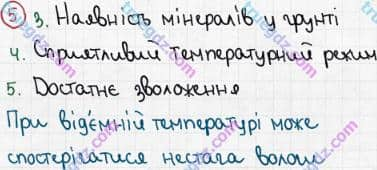 5 3. Наявність мінералів у ґрунті
4. Сприятливий температурний режим
5. Достатнє зволоження
При від'ємній температурі може
спостерігатися нестача вологи